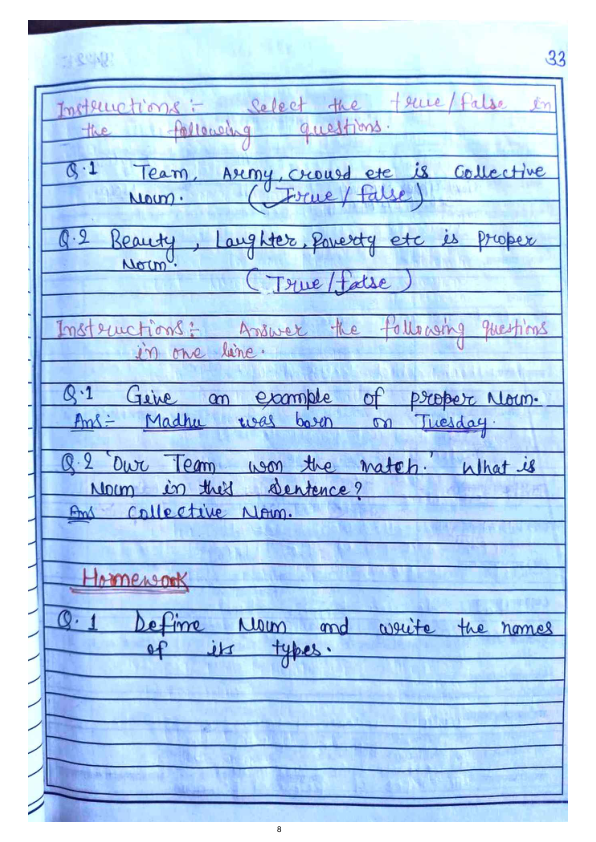 33
Instructions :- Select the true/false in
the following questions.
Q.1 Team, Army, crowd etc is Collective
Noun. (True/false)
Q.2 Beauty, Laughter, Poverty etc is proper
Noun.
(True/false)
Instructions :- Answer the following questions
in one line.
Q.1 Give an example of proper Noun.
Ans :- Madhu was born on Tuesday.
Q.2 'Our Team won the match.' What is
Noun in this Sentence?
Ans Collective Noun.
Homework
Q.1 Define Noun and write the names
of its types.
8